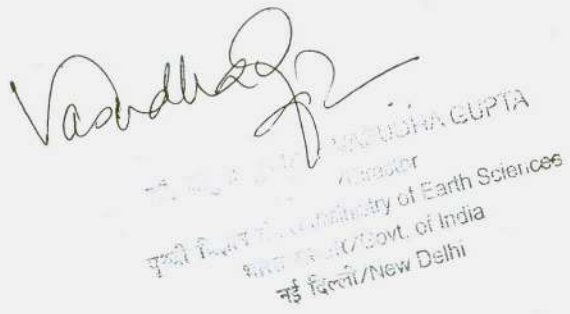 Vasudha Gupta
VASUDHA GUPTA
/Director
पृथ्वी विज्ञान /Ministry of Earth Sciences
भारत सरकार/Govt. of India
नई दिल्ली/New Delhi